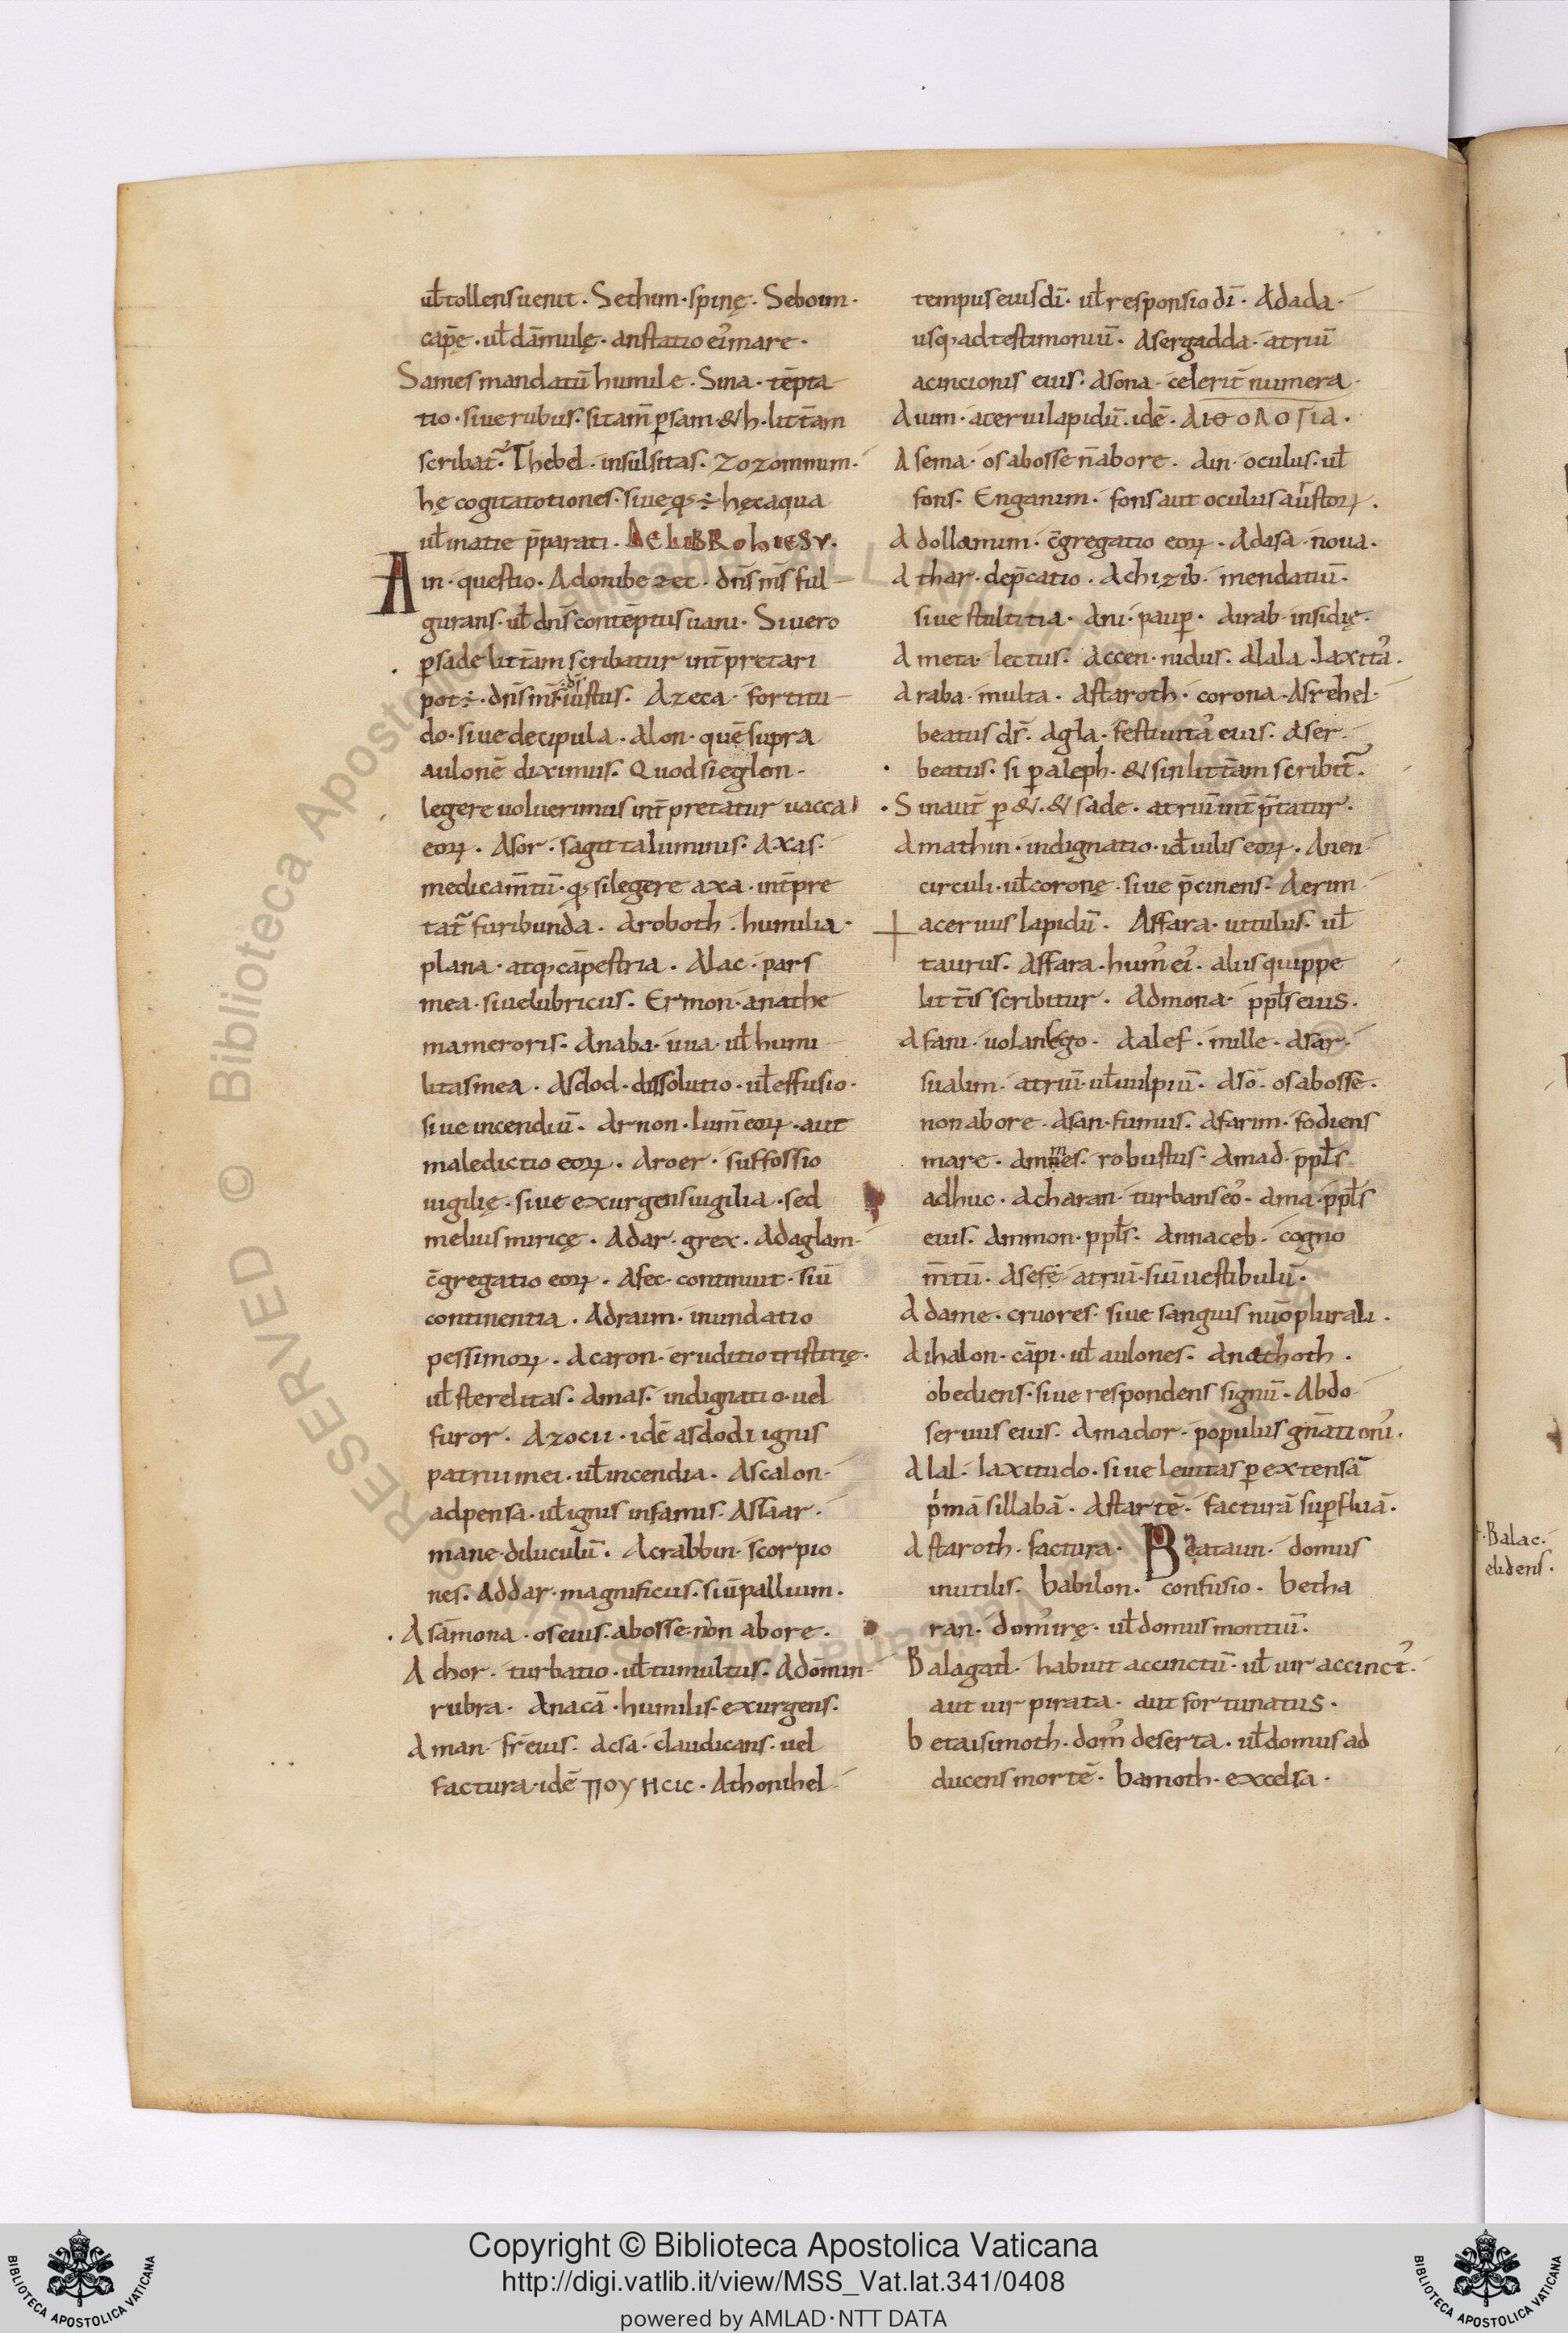 ul̄ tollens uenit. Sethim. spinę. Seboim.
cap̄ę. ul̄ dām̄ulę. aut statio ei᾿ mare.
Sames mandatū humile. Sina. tēpta
tio. siue rubus. si tam̄ ꝑ sam. & h. litt̄am
scribat᾿. Thebel. insulsitas. Zozommim.
hę cogitatotiones. siue qs ÷ hęc aqua
ul̄ in acie p̄parati. DE LIBRO hIESV.
Ain. questio. Adonibezec. dn̄s m̄s ful
gurans. ul̄ dn̄s contēptus uani. Si uero
ꝑ sade litt̄am scribatur int̄pretari
pot ÷. dn̄s m̄s iustus. Azeca. fortitu
do. siue decipula. Alon. quē supra
aulonē diximus. Quod si eglon.
legere uoluerimus int̄pretatur uacca
eoꝝ. Asor. sagitta luminis. Axas.
medicam̄tū. qs si legere axa. int̄pre
tat᾿ furibunda. Aroboth. humilia.
plana. atq; cāpestria. Alac. pars
mea. siue lubricus. Ermon. anathe
ma meroris. Anaba. uua. ul̄ humi
litas mea. Asdod. dissolutio. ul̄ effusio.
siue incendiū. Arnon. lum̄ eoꝝ. aut
maledictio eoꝝ. Aroer. suffossio
uigilię. siue exurgens uigilia. sed
melius miricę. Adar. grex. Adaglam.
c̄gregatio eoꝝ. Afec. continuit. siū
continentia. Adraim. inundatio
pessimoꝝ. Acaron. eruditio tristitię.
ul̄ sterelitas. Amas. indignatio. uel
furor. Azocii. idē asdodi ignis
patrui mei. ul̄ incendia. Ascalon.
adpensa. ul̄ ignis infamis. Assaar.
mane. diluculū. Acrabbin. scorpio
nes. Addar. magnificus. siū pallium.
Asāmona. os eius. ab osse. non ab ore.
Achor. turbatio. ul̄ tumultus. Adomin.
rubra. Anacā. humilis. exurgens.
Aman. fr̄ eius. Acsa. claudicans. uel
factura. idē ποyHcιc. Athonihel.
tempus eius dī. ul̄ responsio dī. Adada.
usq; ad testimoniū. Asergadda. atriū
acincionis eius. Asona. celerit᾿ numera.
Auim. aceruilapidū. idē. ΛιΘολοΓιa.
Asema. os ab osse n̄ ab ore. Ain. oculus. ul̄
fons. Enganim. fons aut oculus aūstoꝝ.
Adollamim. c̄gregatio eoꝝ. Adasa. noua.
Athar. dep̄catio. Achizib. mendatiū.
siue stultitia. Ani. pauꝑ. Airab. insidię.
Ameta. lectus. Accen. nidus. Alala. laxita᾿.
Araba. multa. Astaroth. corona. Asrehel.
beatus dr̄. Agla. festiuita᾿ eius. Aser.
beatus. si ꝑ aleph. & sin litt̄am scribit᾿.
Sin aut̄ ꝑ &. & sade. atriū int̄p̄tatur.
Amathin. indignatio. ul̄ uilis eoꝝ. Anen
circuli. ul̄ coronę. siue p̄cinens. Aerim
aceruus lapidū. Affara. uitulus. ul̄
taurus. Affara. hum᾿ ei᾿. aliis quippe
litt̄is scribitur. Admona. ppl̄s eius.
Afani. uolans ego. Aalef. mille. Asar.
sualim. atriū. ul̄ uulpiū. Asō. os ab osse.
non ab ore. Asan. fumus. Afarim. fodiens
mare. Ammes. robustus. Amad. ppl̄s
adhuc. Acharan. turbans eo᾿. Ama. ppl̄s
eius. Ammon. ppl̄s. Annaceb. cogno
m̄tū. Asefę. atriū. siū uestibulū.
Adame. cruores. siue sanguis nūo plurali.
Aihalon. cāpi. ul̄ aulones. Anathoth.
obediens. siue respondens signū. Abdo.
seruus eius. Amador. populus gn̄ationū.
Alal. laxitudo. siue leuitas ꝑ extensā
p̄mā sillabā. Astartē. facturā suꝑfluā.
Astaroth. factura. Beataun. domus
inutilis. babilon. confusio. betha
ran. dom᾿ irę. ul̄ domus montiū.
Balagad. habuit accinctū. ul̄ uir accinct᾿.
aut uir pirata. aut fortunatus.
betaisimoth. dom᾿ deserta. ul̄ domus ad
ducens mortē. bamoth. excelsa.
Balac.
elidens.
© Biblioteca Apostolica Vaticana
RESERVED
Copyright © Biblioteca Apostolica Vaticana
http://digi.vatlib.it/view/MSS_Vat.lat.341/0408
powered by AMLAD·NTT DATA
BIBLIOTECA APOSTOLICA VATICANA
BIBLIOTECA APOSTOLICA VATICANA